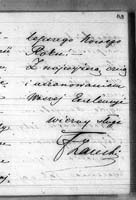 lepszego Nowego
Roku.
Z najwyższą czcią
i uszanowaniem
Waszej Excelencyi
wierny sługa